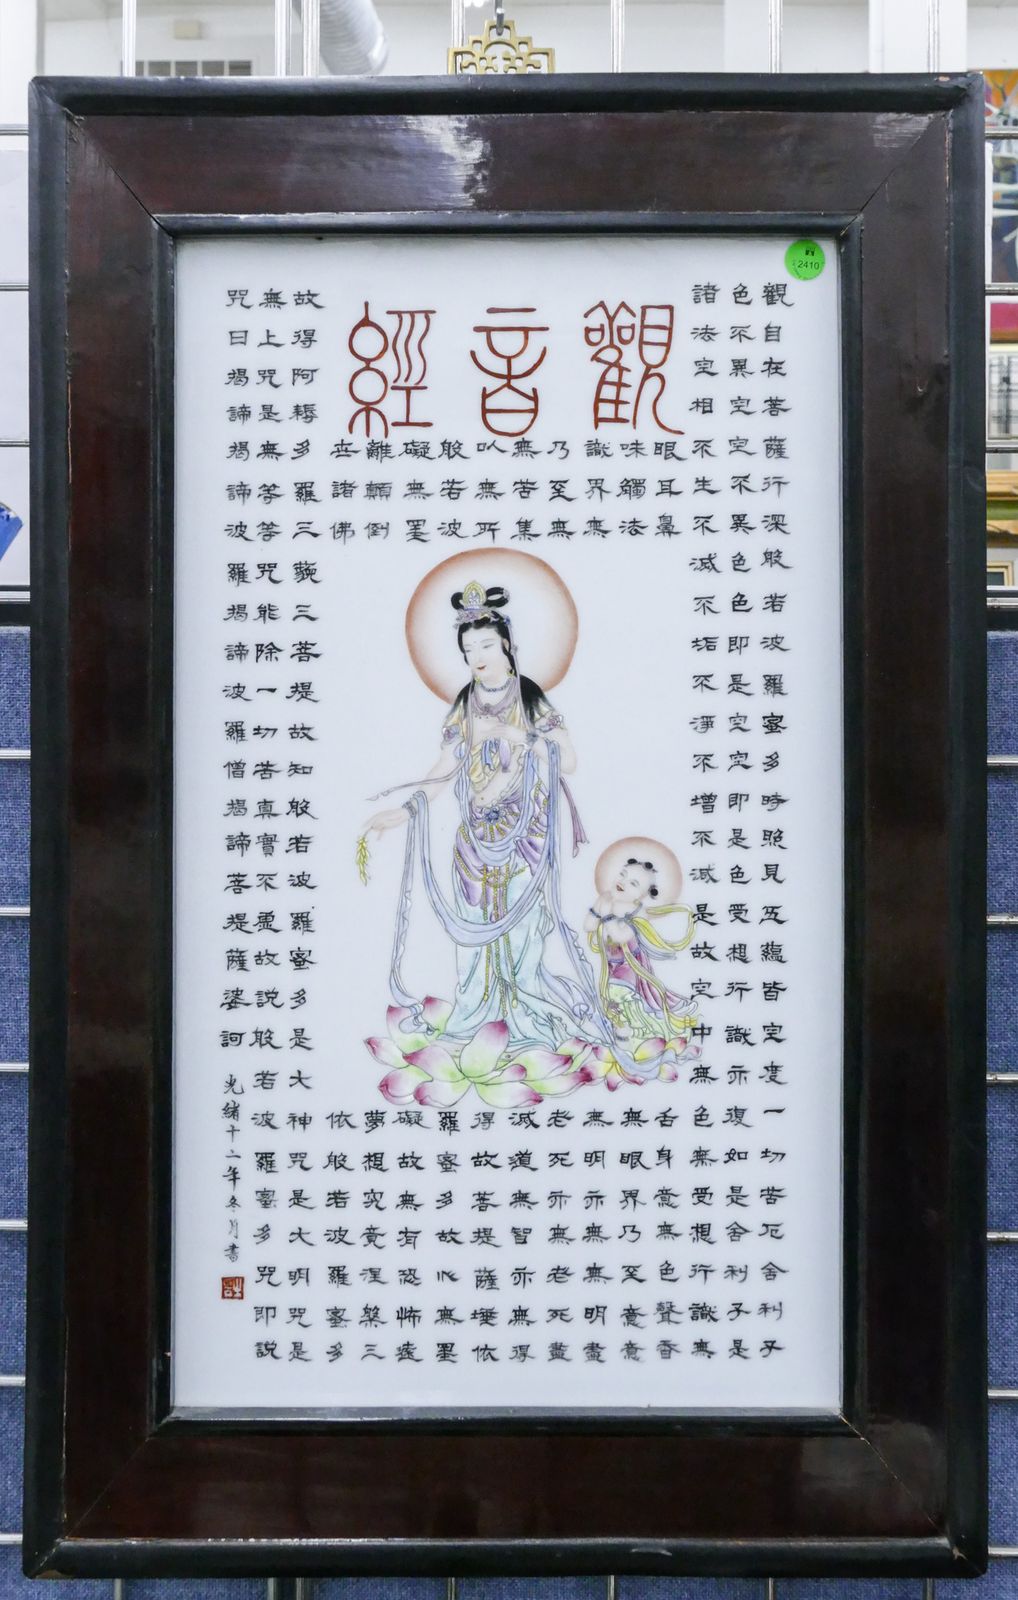 觀音經
觀自在菩薩行深般若波羅蜜多時照見五蘊皆空度一切苦厄舍利子
色不異空空不異色色即是空空即是色受想行識亦復如是舍利子是
諸法空相不生不滅不垢不淨不增不減是故空中無色無受想行識無
眼耳鼻舌身意無色聲香
味觸法無眼界乃至意意
識界無無明亦無無明盡
乃至無老死亦無老死盡
無苦集滅道無智亦無得
以無所得故菩提薩埵依
般若波羅蜜多故心無罣
礙無罣礙故無有恐怖遠
離顛倒夢想究竟涅槃三
世諸佛依般若波羅蜜多
故得阿耨多羅三藐三菩提故知般若波羅蜜多是大神咒是大明咒是
無上咒是無等等咒能除一切苦真實不虛故說般若波羅蜜多咒即說
咒曰揭諦揭諦波羅揭諦波羅僧揭諦菩提薩婆訶
光緒十二年冬月書
2410